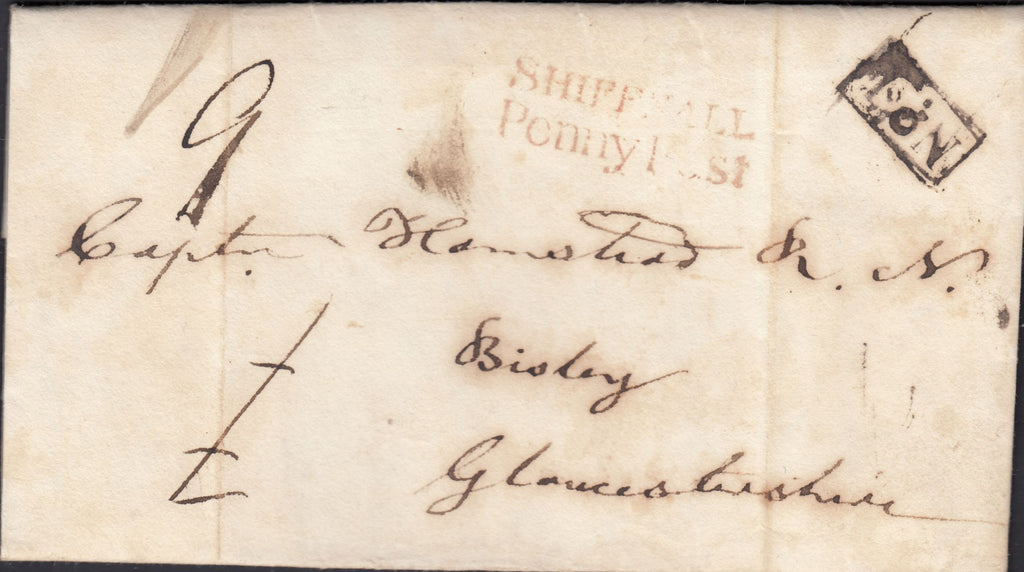 9
SHIFFNALL
Penny Post
No. 2
Captn. Hamstead R. N.
Bisley
Gloucestershire